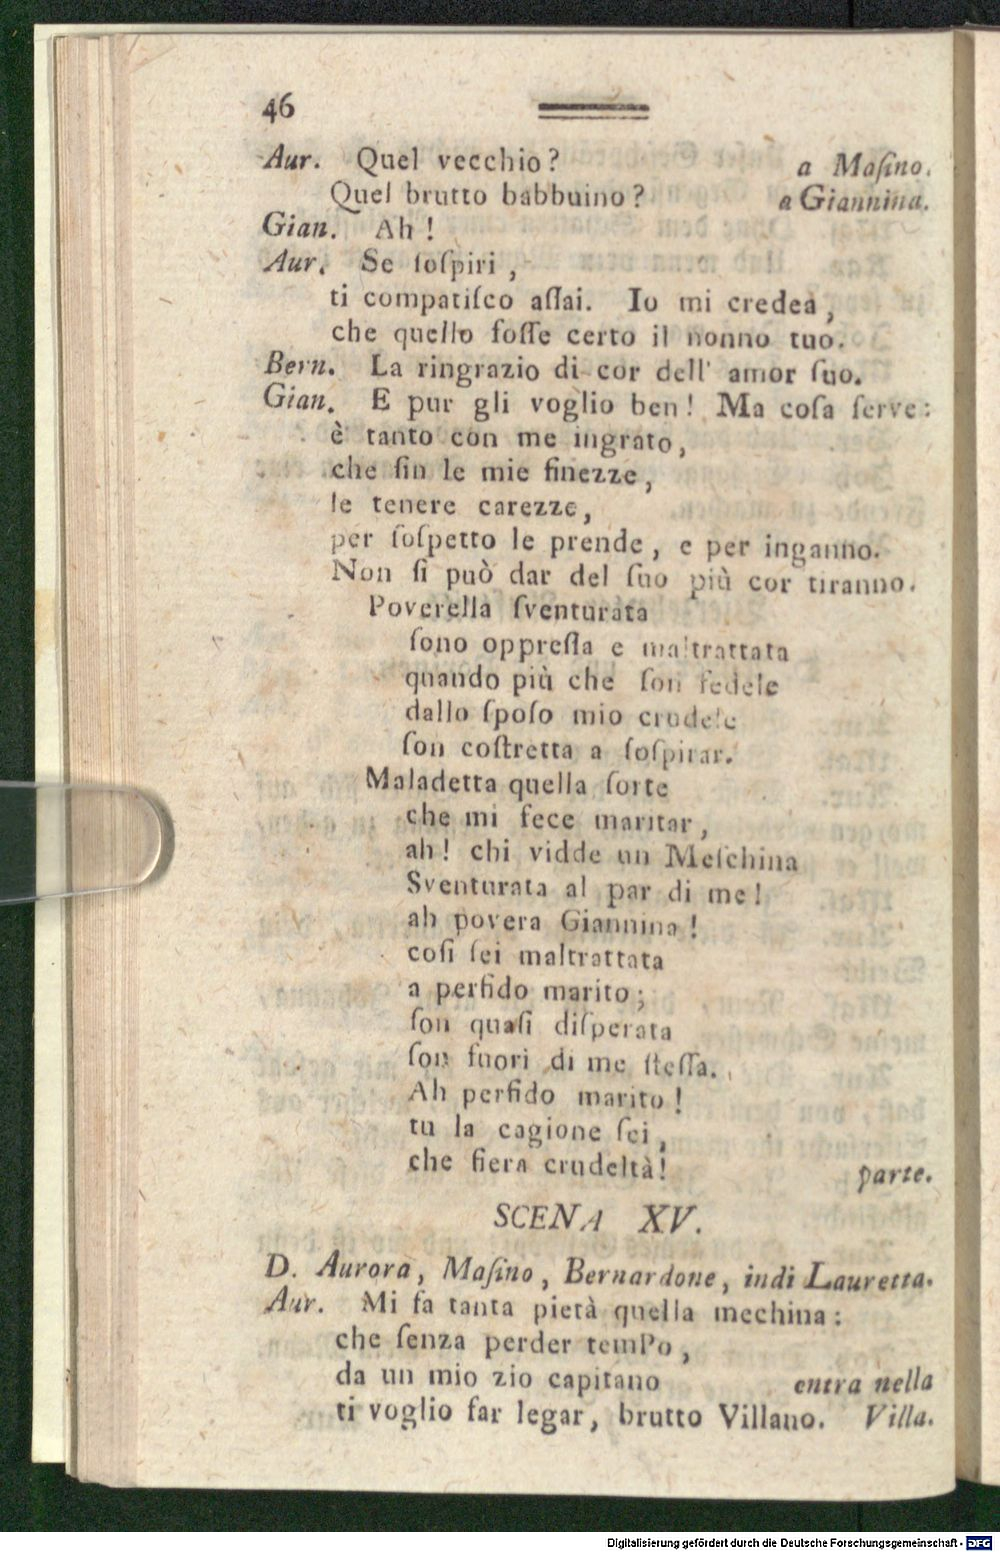 46
Aur. Quel vecchio? a Maſino.
Quel brutto babbuino? a Giannina.
Gian. Ah!
Aur. Se ſoſpiri,
ti compatiſco aſſai. Io mi credea,
che quello foſſe certo il nonno tuo.
Bern. La ringrazio di cor dell' amor ſuo.
Gian. E pur gli voglio ben! Ma coſa ſerve:
è tanto con me ingrato,
che ſin le mie finezze,
le tenere carezze,
per ſoſpetto le prende, e per inganno.
Non ſi può dar del ſuo più cor tiranno.
Poverella ſventurata
ſono oppreſſa e maltrattata
quando più che ſon fedele
dallo ſpoſo mio crudele
ſon coſtretta a ſoſpirar.
Maladetta quella ſorte
che mi fece maritar,
ah! chi vidde un Meſchina
Sventurata al par di me!
ah povera Giannina!
coſi ſei maltrattata
a perfido marito;
ſon quaſi diſperata
ſon fuori di me ſteſſa.
Ah perfido marito!
tu la cagione ſei,
che fiera crudeltà! parte.
SCENA XV.
D. Aurora, Maſino, Bernardone, indi Lauretta.
Aur. Mi fa tanta pietà quella mechina:
che ſenza perder temPo,
da un mio zio capitano entra nella
ti voglio far legar, brutto Villano. Villa.
Digitalisierung gefördert durch die Deutsche Forschungsgemeinschaft - DFG